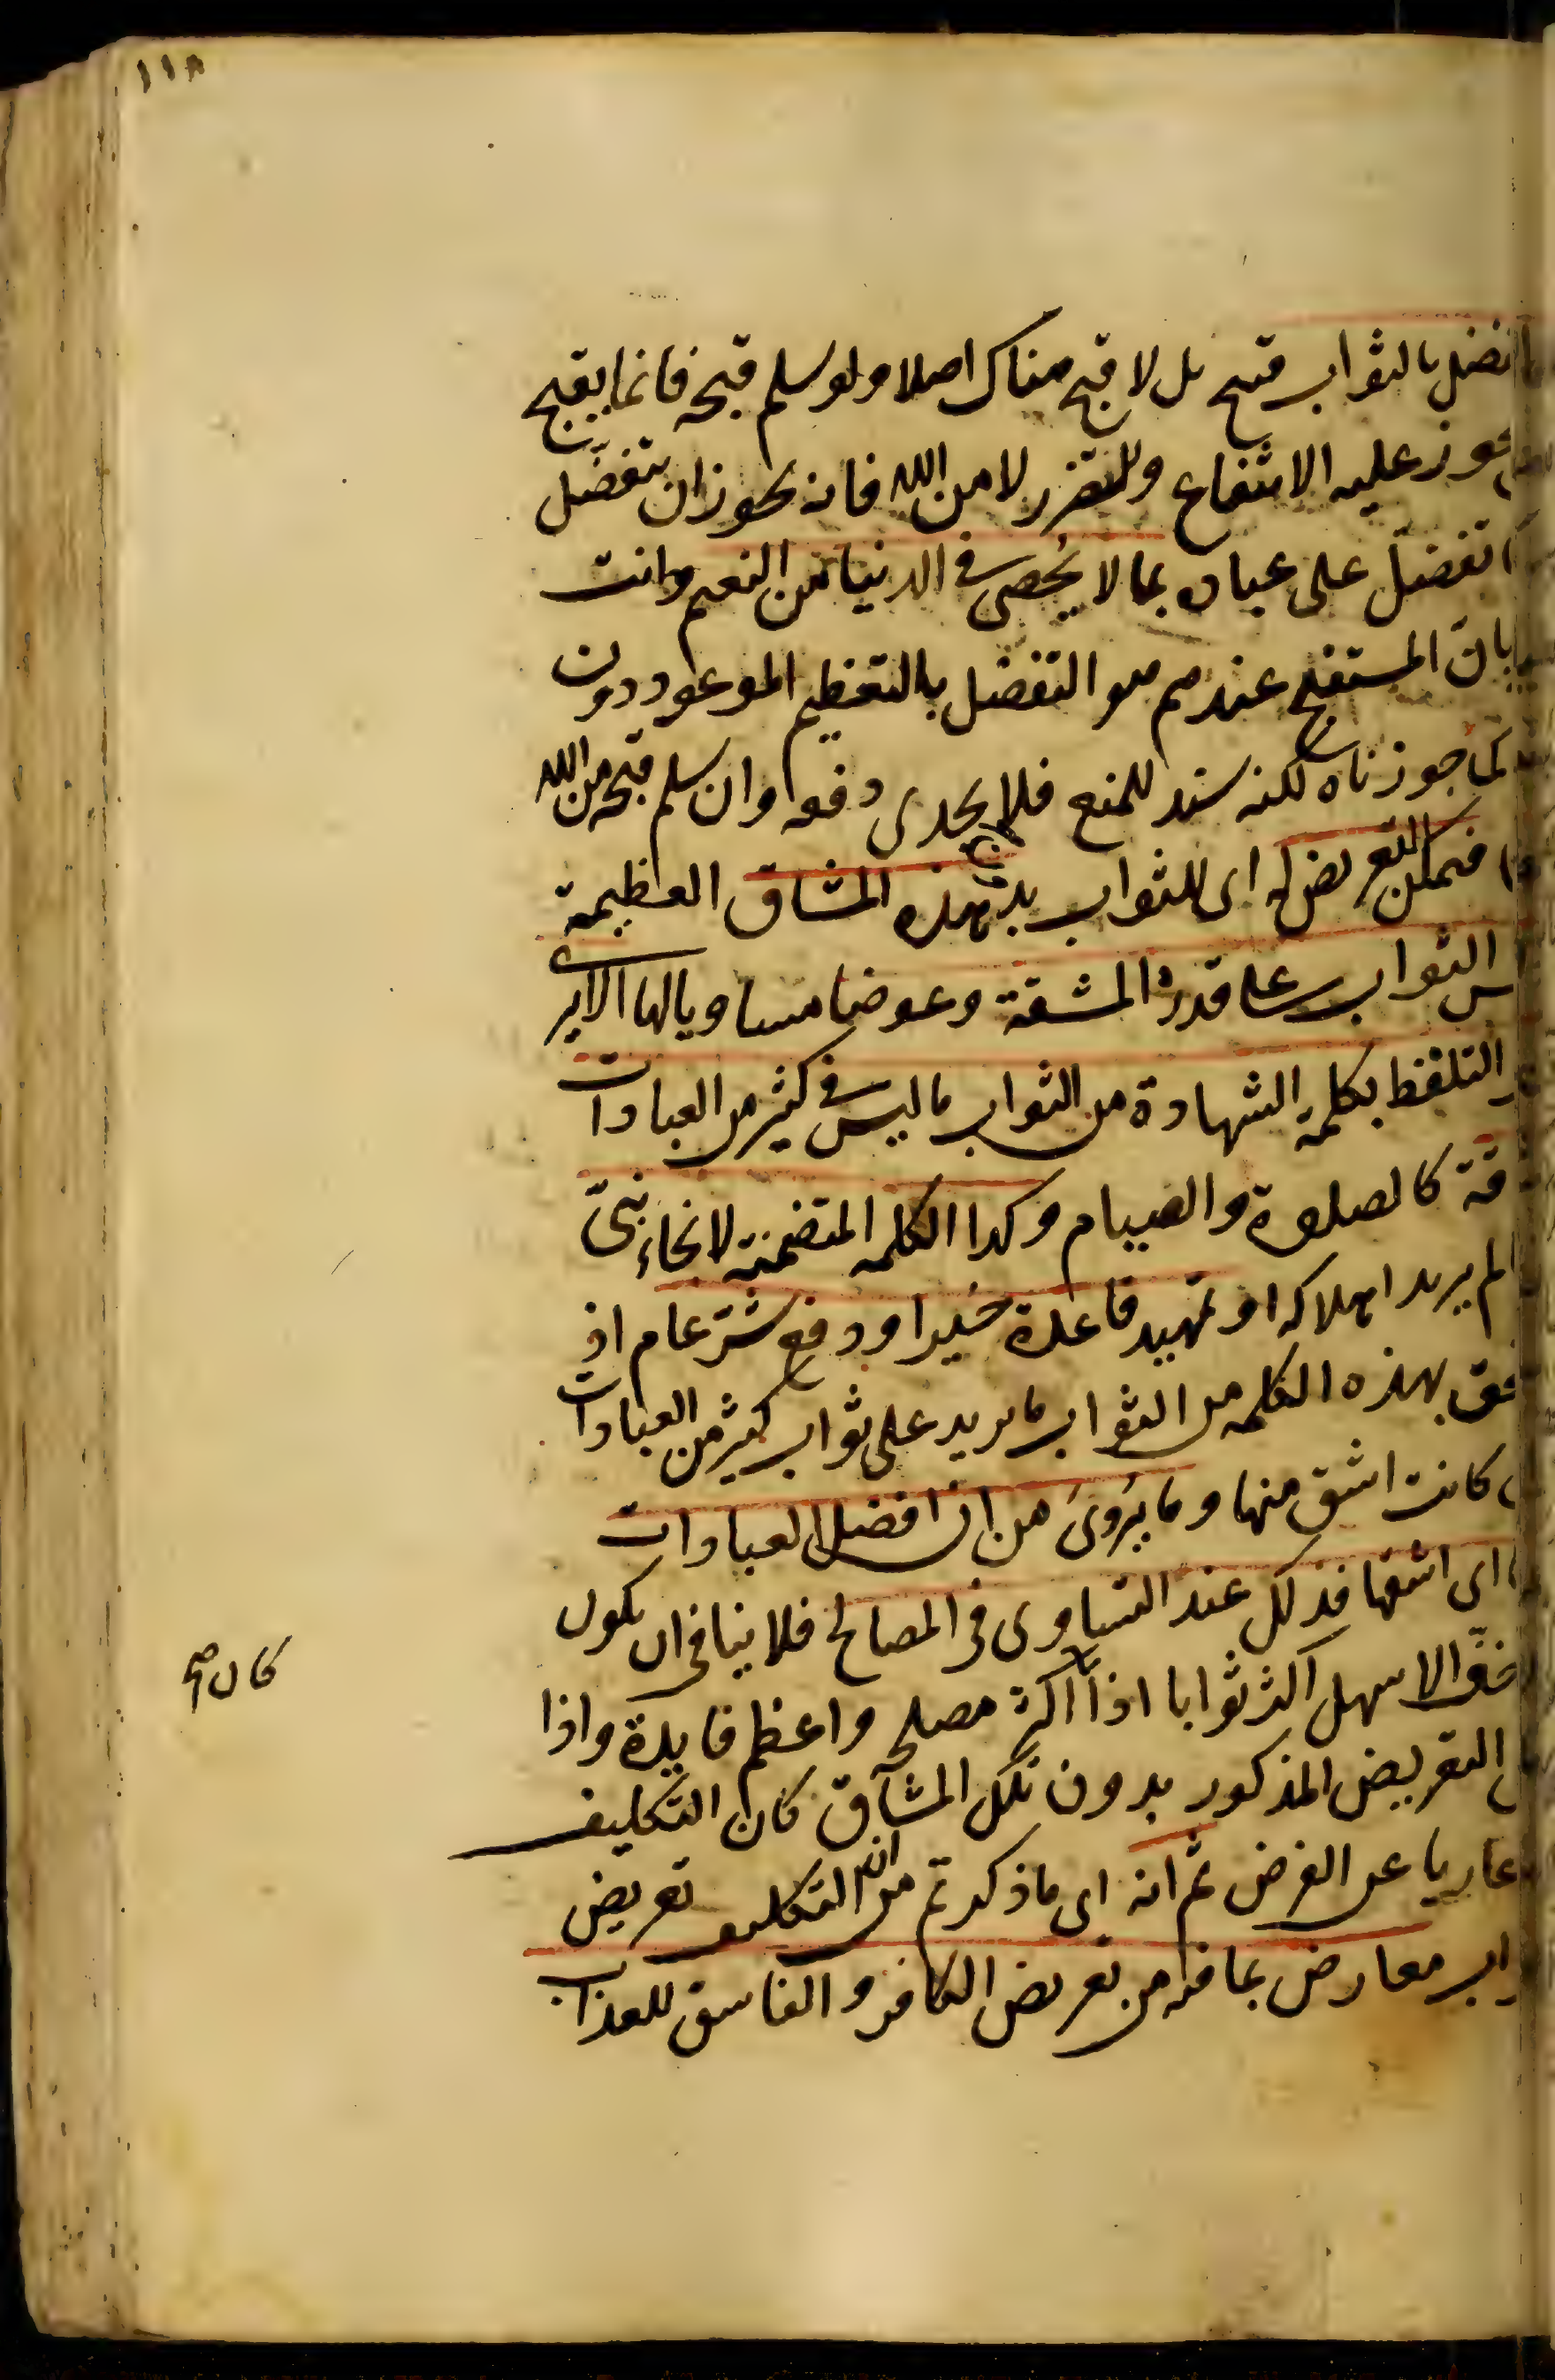 ١١٨
التفضل بالثواب قبيح بل لا قبح هناك اصلا ولو سلم قبحه فانما يقبح
يجوز عليه الانتفاع والتضرر لا من الله فانه يجوز ان يتفضل
تفضل على عباده بما لا يُحصى في الدنيا من النعم وانت
بان المستقبح عندهم هو التفضل بالتعظيم الموعود دون
كما جوزناه لكنه سند للمنع فلا يجدى دفعه وان سلم قبحه من الله
فيمكن التعريض له اى للثواب بدون هذه المشاق العظيمة
ليس الثواب على قدر المشقة وعوضا مساويا لها الا يرى
التلفظ بكلمة الشهادة من الثواب ما ليس في كثير من العبادات
قة كالصلوة والصيام وكذا الكلمة المتضمنة لانجاء نبىّ
لم يريد اهلاكه او تمهيد قاعدة خير او دفع شرّ عام اذ
بهذه الكلمة من الثواب ما يزيد على ثواب كثير من العبادات
كانت اشق منها وما يُروى من ان افضل العبادات
اى اشقها فذلك عند التساوى في المصالح فلا ينافى ان يكون
الاخفّ الاسهل اكثر ثوابا اذا اكثر مصلحة واعظم فايدة واذا
كان صح
التعريض المذكور بدون تلك المشاق كان التكليف
عاريا عن الغرض ثم انه اى ما ذكرتم من ان التكليف تعريض
معارض بما فيه من تعريض الكافر والفاسق للعذاب